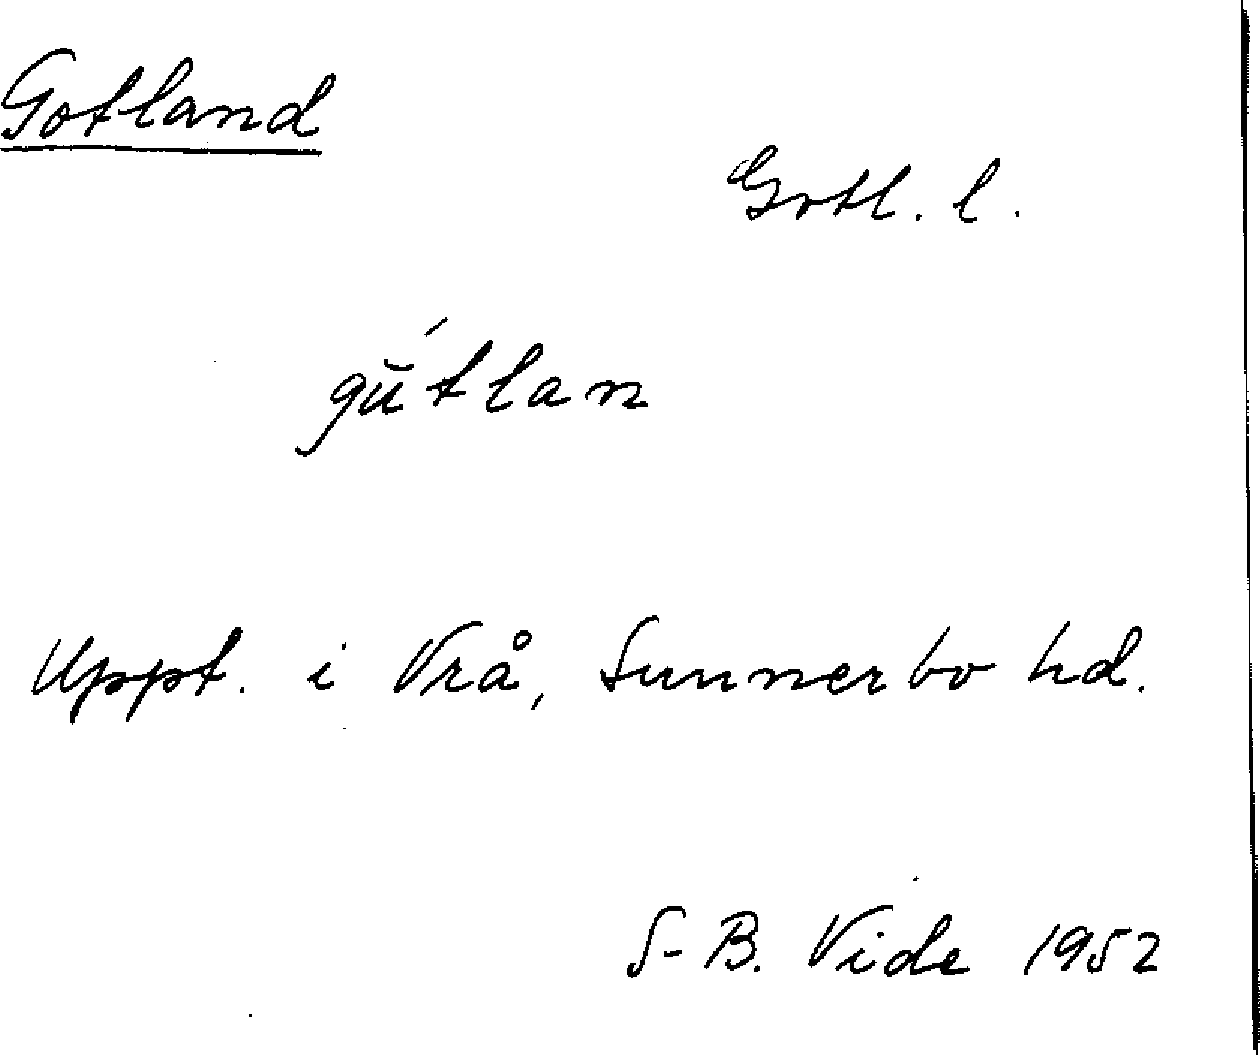 Gotland
Gotl. l.
gŭ́tlan
Uppt. i Vrå, Sunnerbo hd.
S-B. Vide 1952